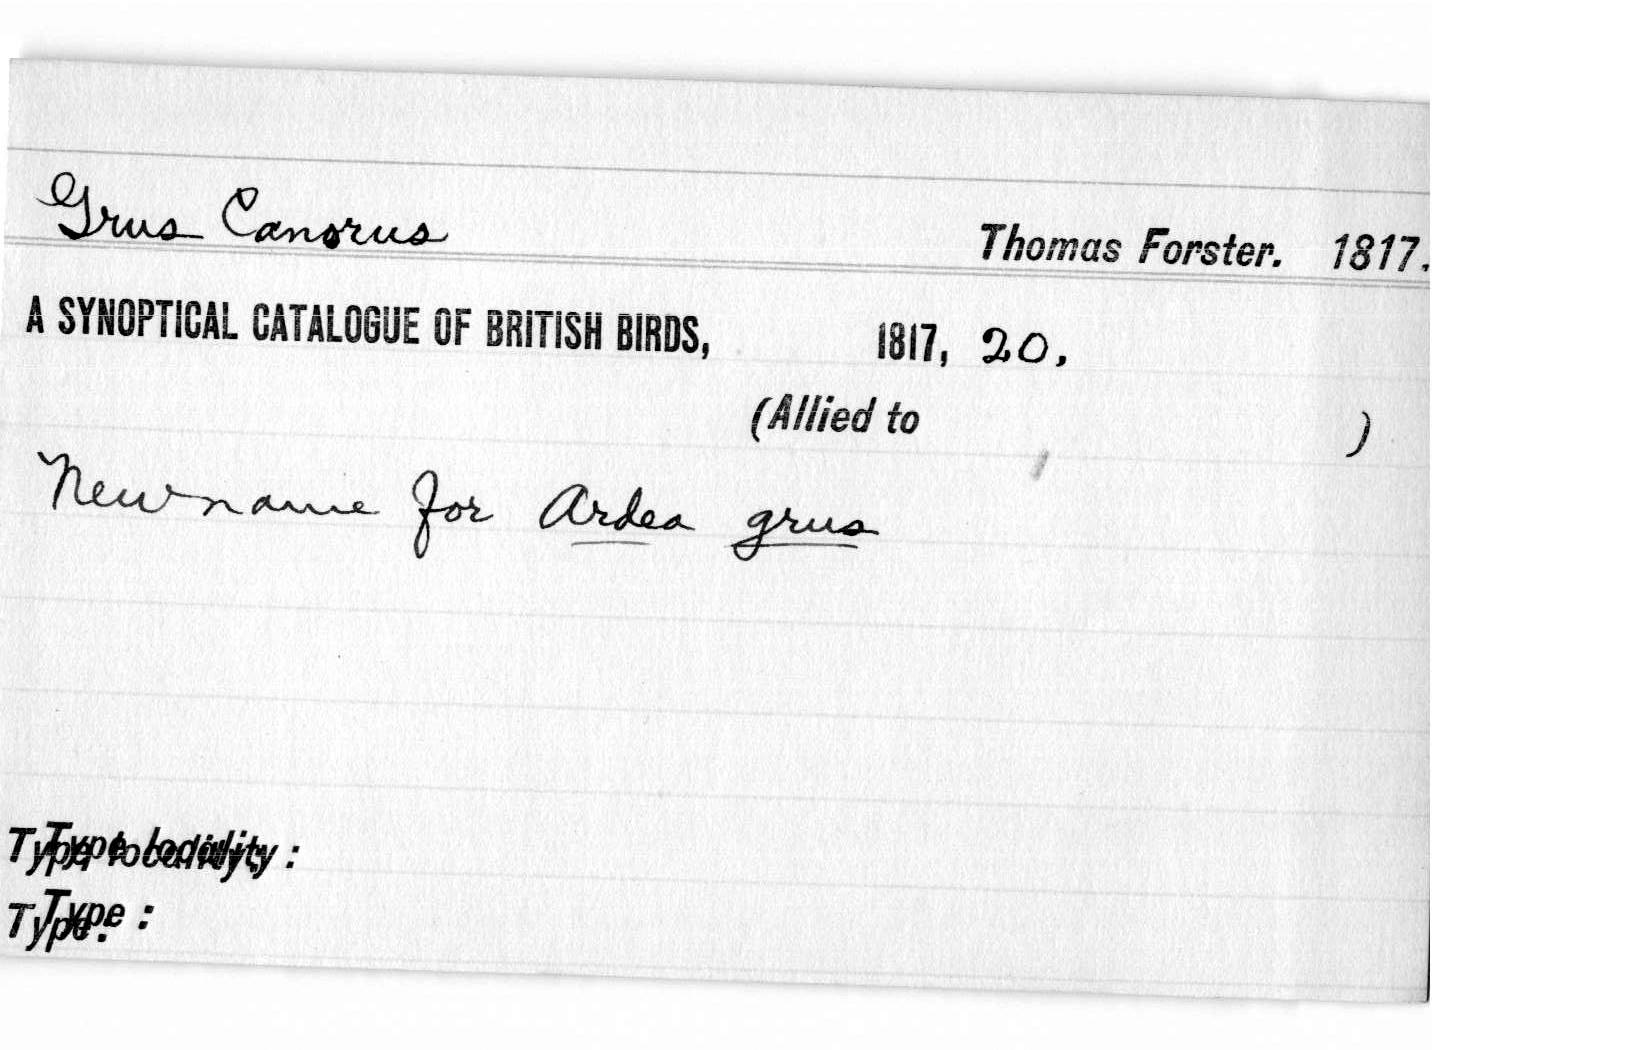 Grus Canorus Thomas Forster. 1817.
A SYNOPTICAL CATALOGUE OF BRITISH BIRDS, 1817, 20.
(Allied to )
New name for Ardea grus
Type locality :
Type :